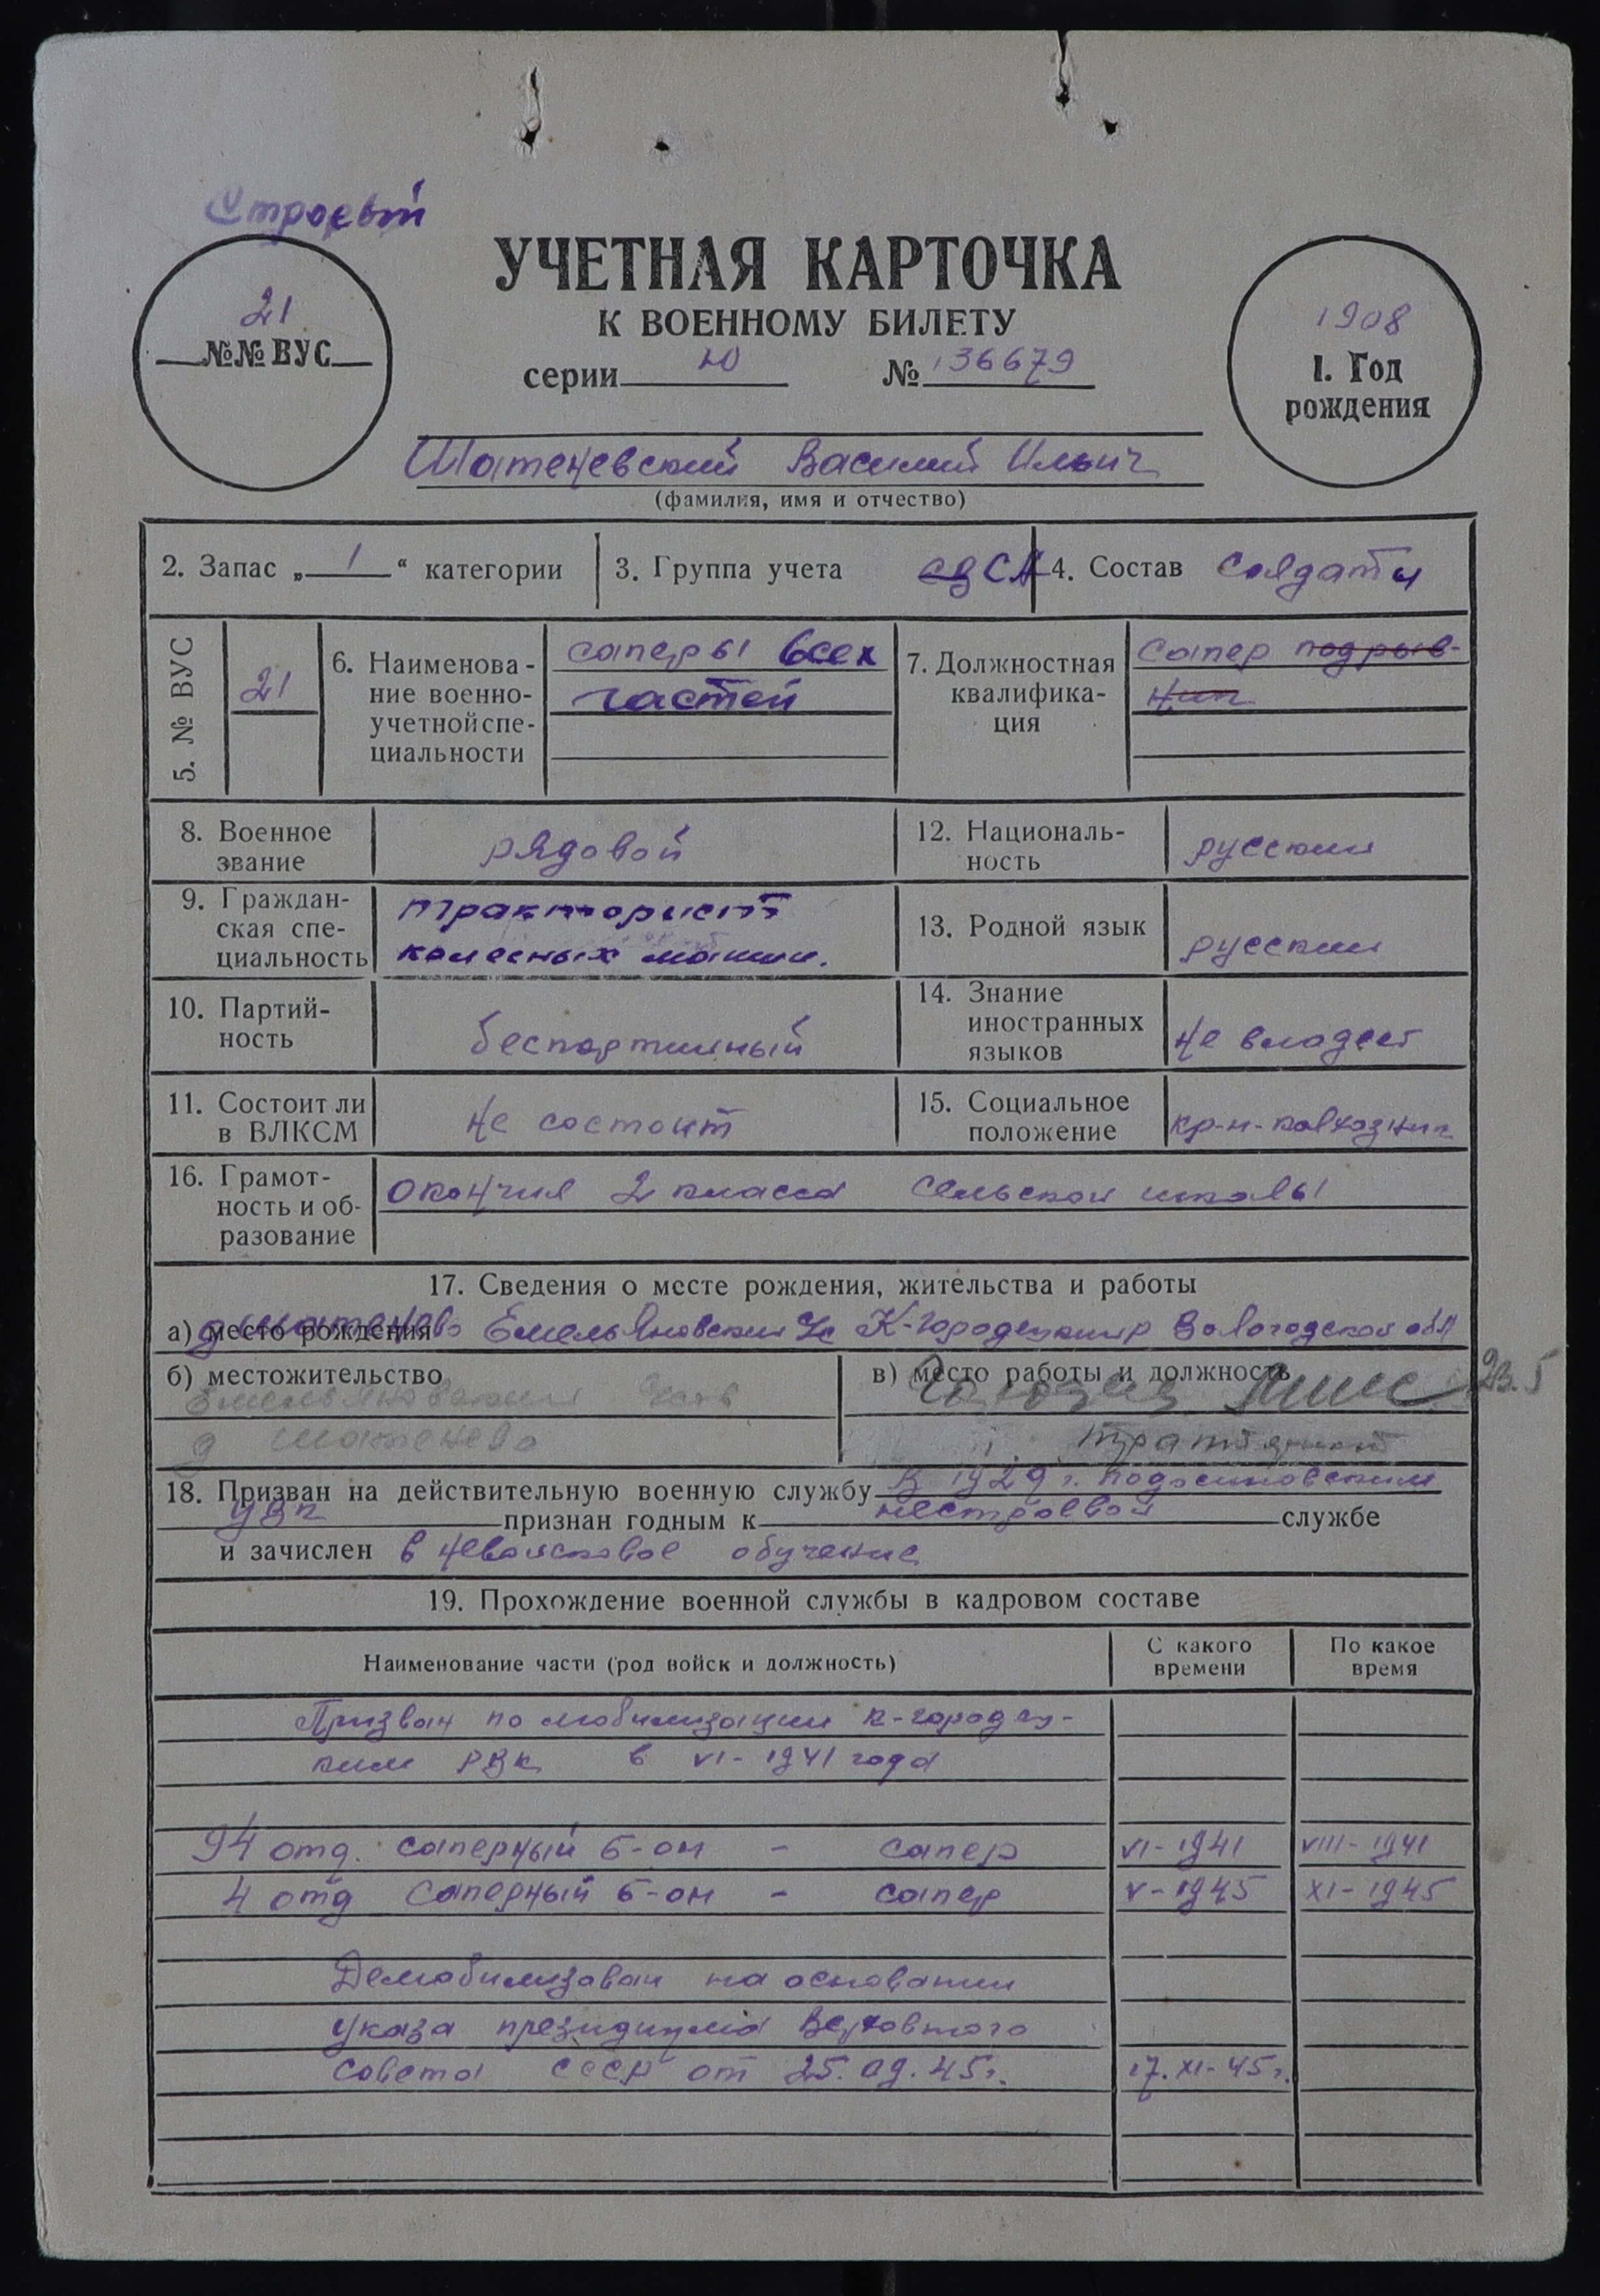 Строевой
21
№№ ВУС
УЧЕТНАЯ КАРТОЧКА
К ВОЕННОМУ БИЛЕТУ
серии Ю № 136679
1908
1. Год
рождения
Шатеневский Василий Ильич
(фамилия, имя и отчество)
2. Запас „1“ категории
3. Группа учета СА
4. Состав солдаты
5. № ВУС
21
6. Наименова-
ние военно-
учетной спе-
циальности
саперы всех
частей
7. Должностная
квалифика-
ция
сапер подрыв-
ник
8. Военное
звание
рядовой
12. Националь-
ность
русский
9. Граждан-
ская спе-
циальность
тракторист
колесных машин.
13. Родной язык
русский
10. Партий-
ность
беспартийный
14. Знание
иностранных
языков
не владеет
11. Состоит ли
в ВЛКСМ
не состоит
15. Социальное
положение
кр-н-колхозник
16. Грамот-
ность и об-
разование
окончил 2 класса сельской школы
17. Сведения о месте рождения, жительства и работы
а) место рождения д Шатенево Емельяновский с/с К-Городецкий р Вологодской обл
б) местожительство
Емельяновский
д Шатенево
в) место работы и должность
18. Призван на действительную военную службу В 1929 г. Подосиновским
УВК признан годным к нестроевой службе
и зачислен в невойсковое обучение
19. Прохождение военной службы в кадровом составе
Наименование части (род войск и должность)
С какого
времени
По какое
время
Призван по мобилизации К-Городец-
ким РВК в VI-1941 года
94 отд. саперный б-он - сапер VI-1941 VIII-1941
4 отд саперный б-он - сапер V-1945 XI-1945
Демобилизован на основании
указа президиума Верховного
Совета СССР от 25.09.45г. 17.XI-45г.